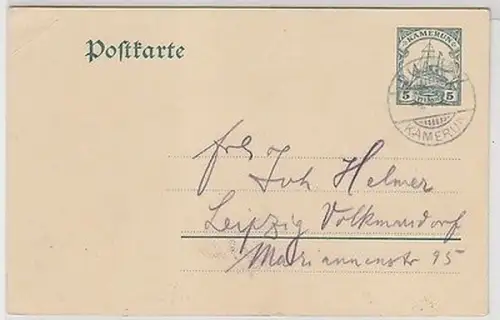 Postkarte
KAMERUN
5 5
KAMERUN
Joh Helmer
Leipzig Volkmarsdorf
Mariannenstr 95